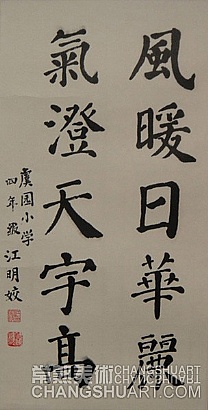 風暖日華麗
氣澄天宇高
虞园小学
四年級 江明姣
常熟美術
CHANGSHUART
CHANGSHUART.COM